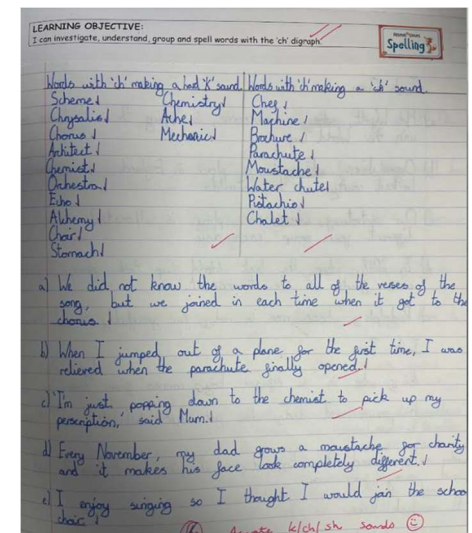 LEARNING OBJECTIVE:
I can investigate, understand, group and spell words with the 'ch' digraph.
Spelling
Words with 'ch' making a hard 'k' sound. Words with 'ch' making a 'sh' sound.
Scheme Chemistry Chef
Chrysalis Ache Machine
Chorus Mechanic Brochure
Architect Parachute
Chemist Moustache
Orchestra Water chute
Echo Pistachio
Alchemy Chalet
Choir
Stomach
a) We did not know the words to all of the verses of the
song, but we joined in each time when it got to the
chorus.
b) When I jumped out of a plane for the first time, I was
relieved when the parachute finally opened.
c) 'I'm just popping down to the chemist to pick up my
perscription,' said Mum.
d) Every November, my dad grows a moustache for charity
and it makes his face look completely different.
e) I enjoy singing so I thought I would join the school
choir.
k/ch/sh sounds